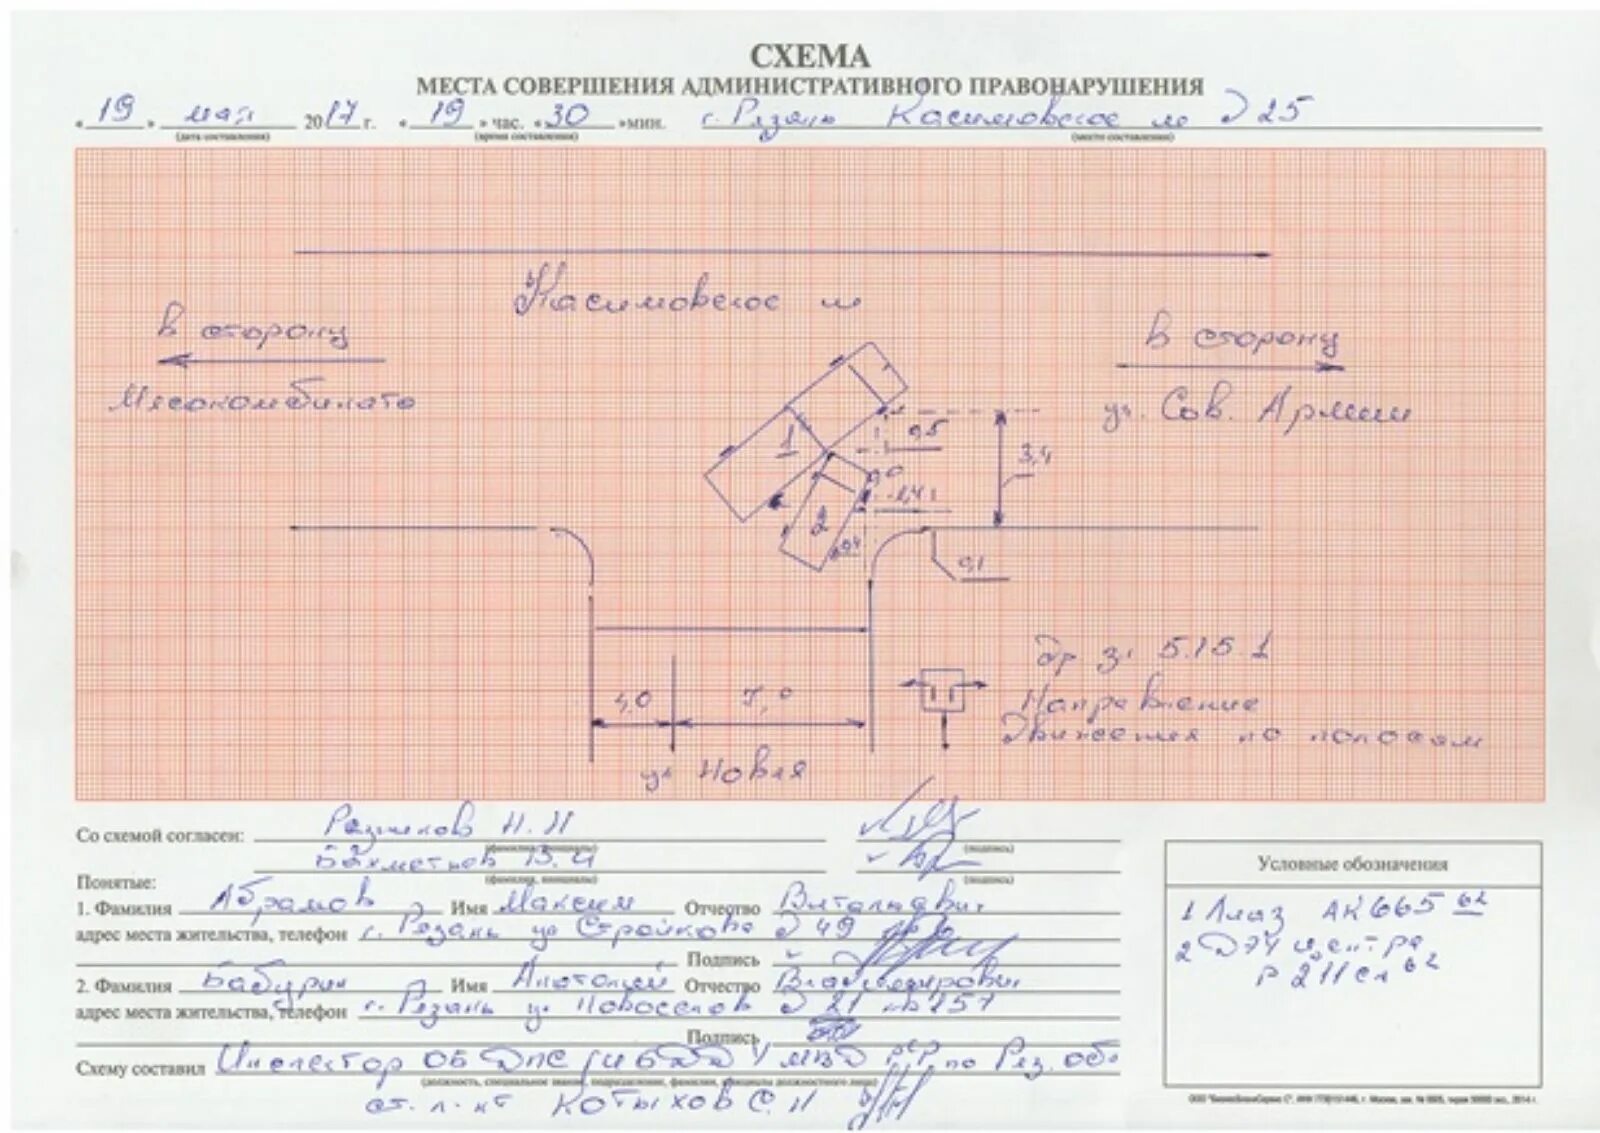 СХЕМА
МЕСТА СОВЕРШЕНИЯ АДМИНИСТРАТИВНОГО ПРАВОНАРУШЕНИЯ
« 19 » мая 2017 г. « 19 » час. « 30 » мин. г. Рязань Касимовское ш д 25
(дата составления) (время составления) (место составления)
Касимовское ш
в сторону
Мясокомбината
в сторону
ул. Сов. Армии
1
0,5
3,4
2
0,1
4,0
ул Новая
др з. 5.15.1
Направление
движения по полосам
Со схемой согласен: Н.Н
(фамилия, инициалы) (подпись)
Бахметьев В.И
(фамилия, инициалы) (подпись)
Понятые:
1. Фамилия Абрамов Имя Максим Отчество Витальевич
адрес места жительства, телефон г. Рязань ул Стройкова д 49
Подпись
2. Фамилия Бабурин Имя Анатолий Отчество Владимирович
адрес места жительства, телефон г. Рязань ул Новоселов д 21 кв 257
Подпись
Схему составил Инспектор ОБ ДПС ГИБДД УМВД РФ по Ряз. обл
(должность, специальное звание, подразделение, фамилия, инициалы должностного лица)
ст. л-нт Котыхов С.Н
Условные обозначения
1 Лиаз АК 665 62
2 Дэу
Р 211 62